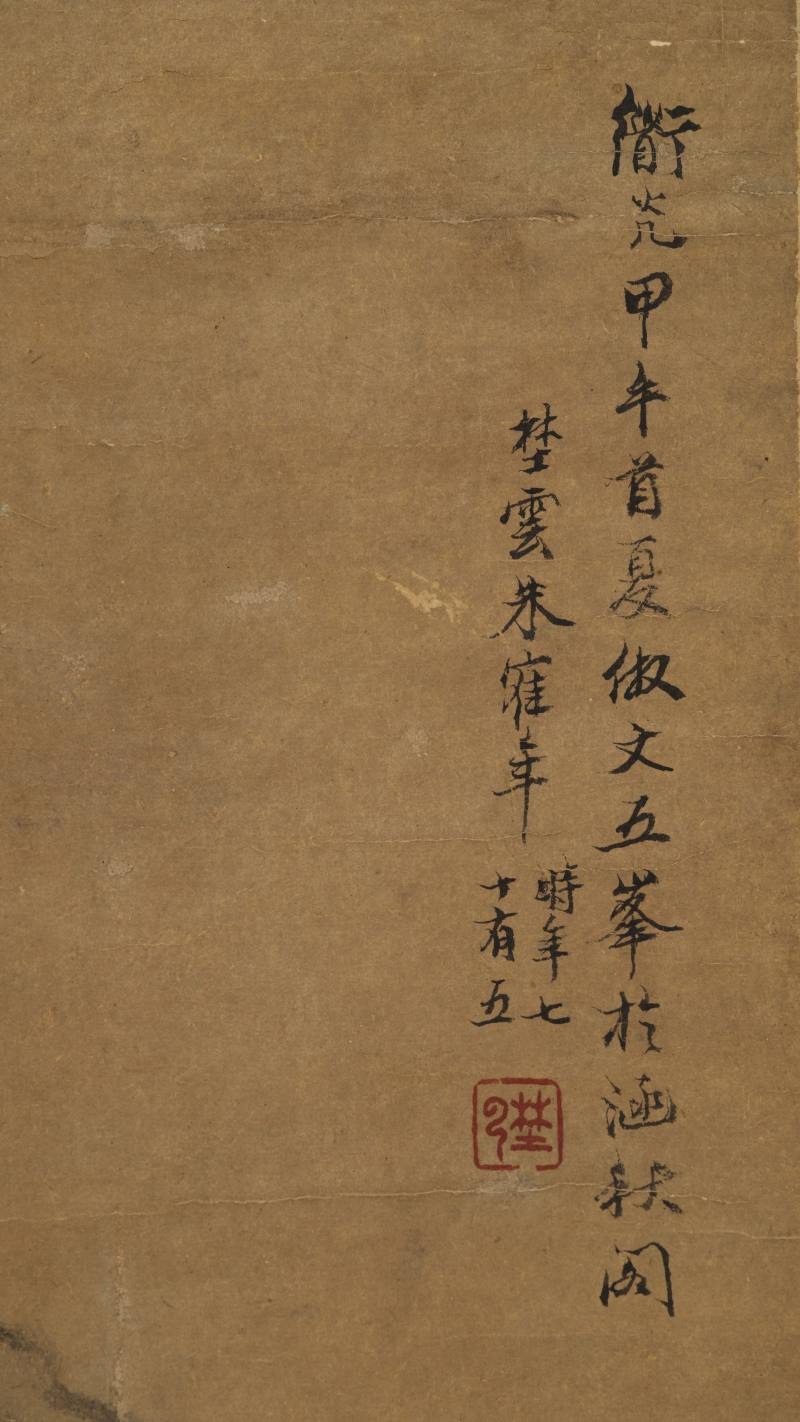 衟灮甲午首夏倣文五峯於涵秋閣
埜雲朱寉年
時年七
十有五
埜云